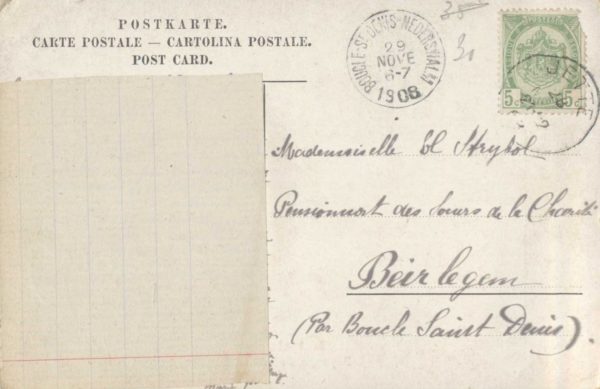 POSTKARTE.
CARTE POSTALE — CARTOLINA POSTALE.
POST CARD.
BOUCLE-ST-DENIS-NEDERSWALM
29
NOVE
6-7
1908
30
5 5
Mademoiselle
Pensionnat des Sœurs de la Charité
Beirlegem
(Par Boucle Saint Denis).